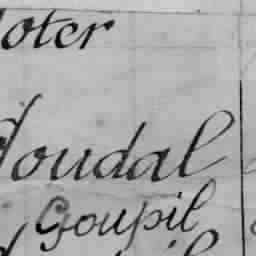 oter
oudal
Goupil